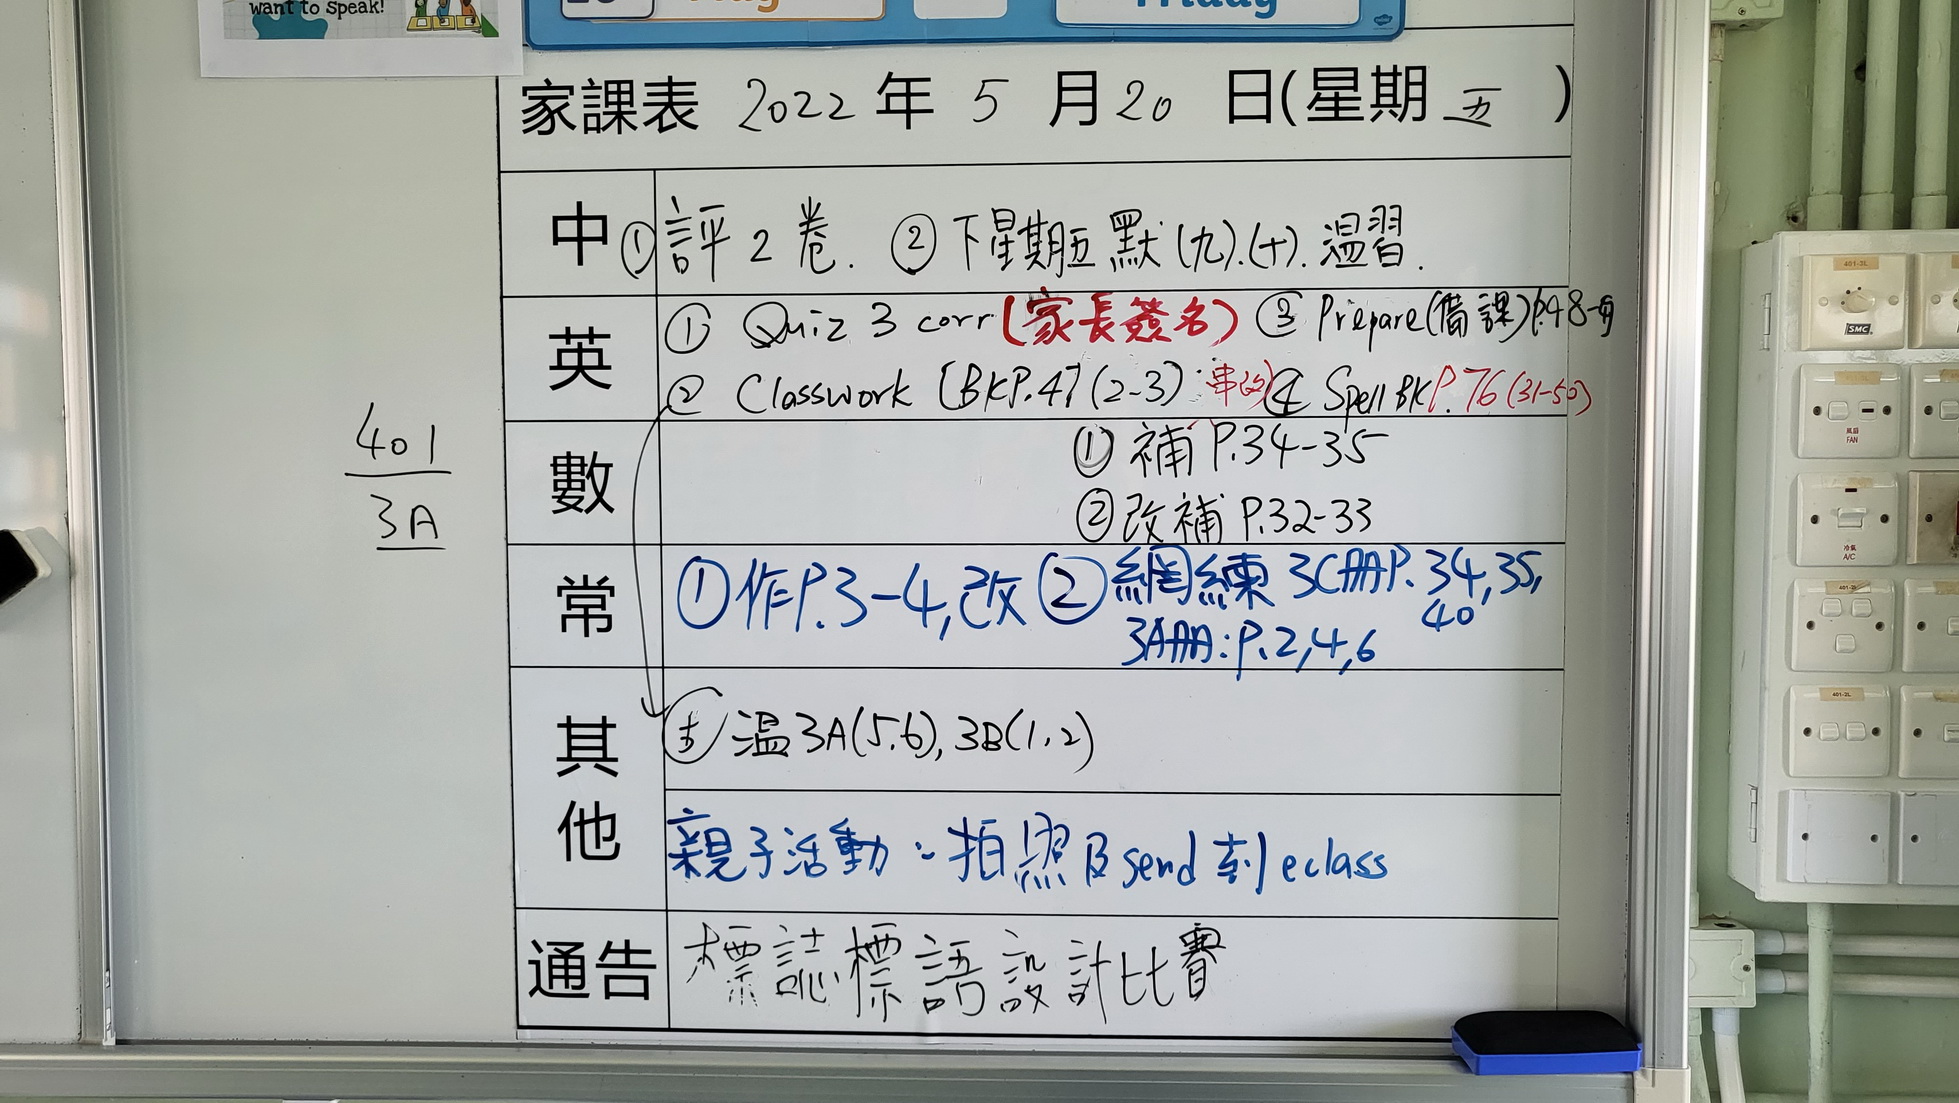 want to speak!
家課表 2022 年 5 月 20 日(星期 五 )
中 ① 評 2 卷. ② 下星期五 默 (九).(十). 溫習.
英 ① Quiz 3 corr (家長簽名) ③ Prepare(備課) P.48-
② Classwork (BKP.47 (2-3) ④ Spell BK P.76 (31-50)
數 ① 補 P.34-35
② 改補 P.32-33
常 ① 作P.3-4,改 ② 網練 3C冊P.34,35,
40
3A冊:P.2,4,6
401
3A
其他 溫 3A(5.6), 3B(1.2)
親子活動:拍照及send到eclass
通告 標誌標語設計比賽
401-3L
SMC
風扇
FAN
冷氣
A/C
401-2L